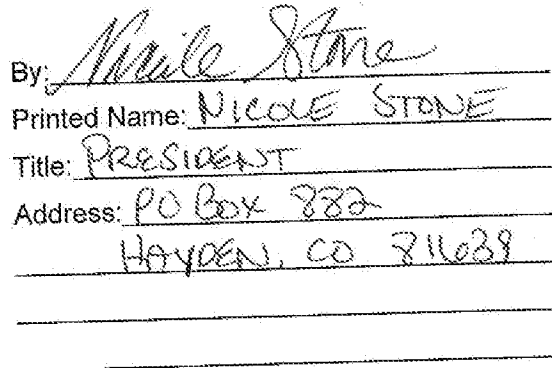 By: Nicole Stone
Printed Name: NICOLE STONE
Title: PRESIDENT
Address: PO BOX 882
HAYDEN, CO 81639